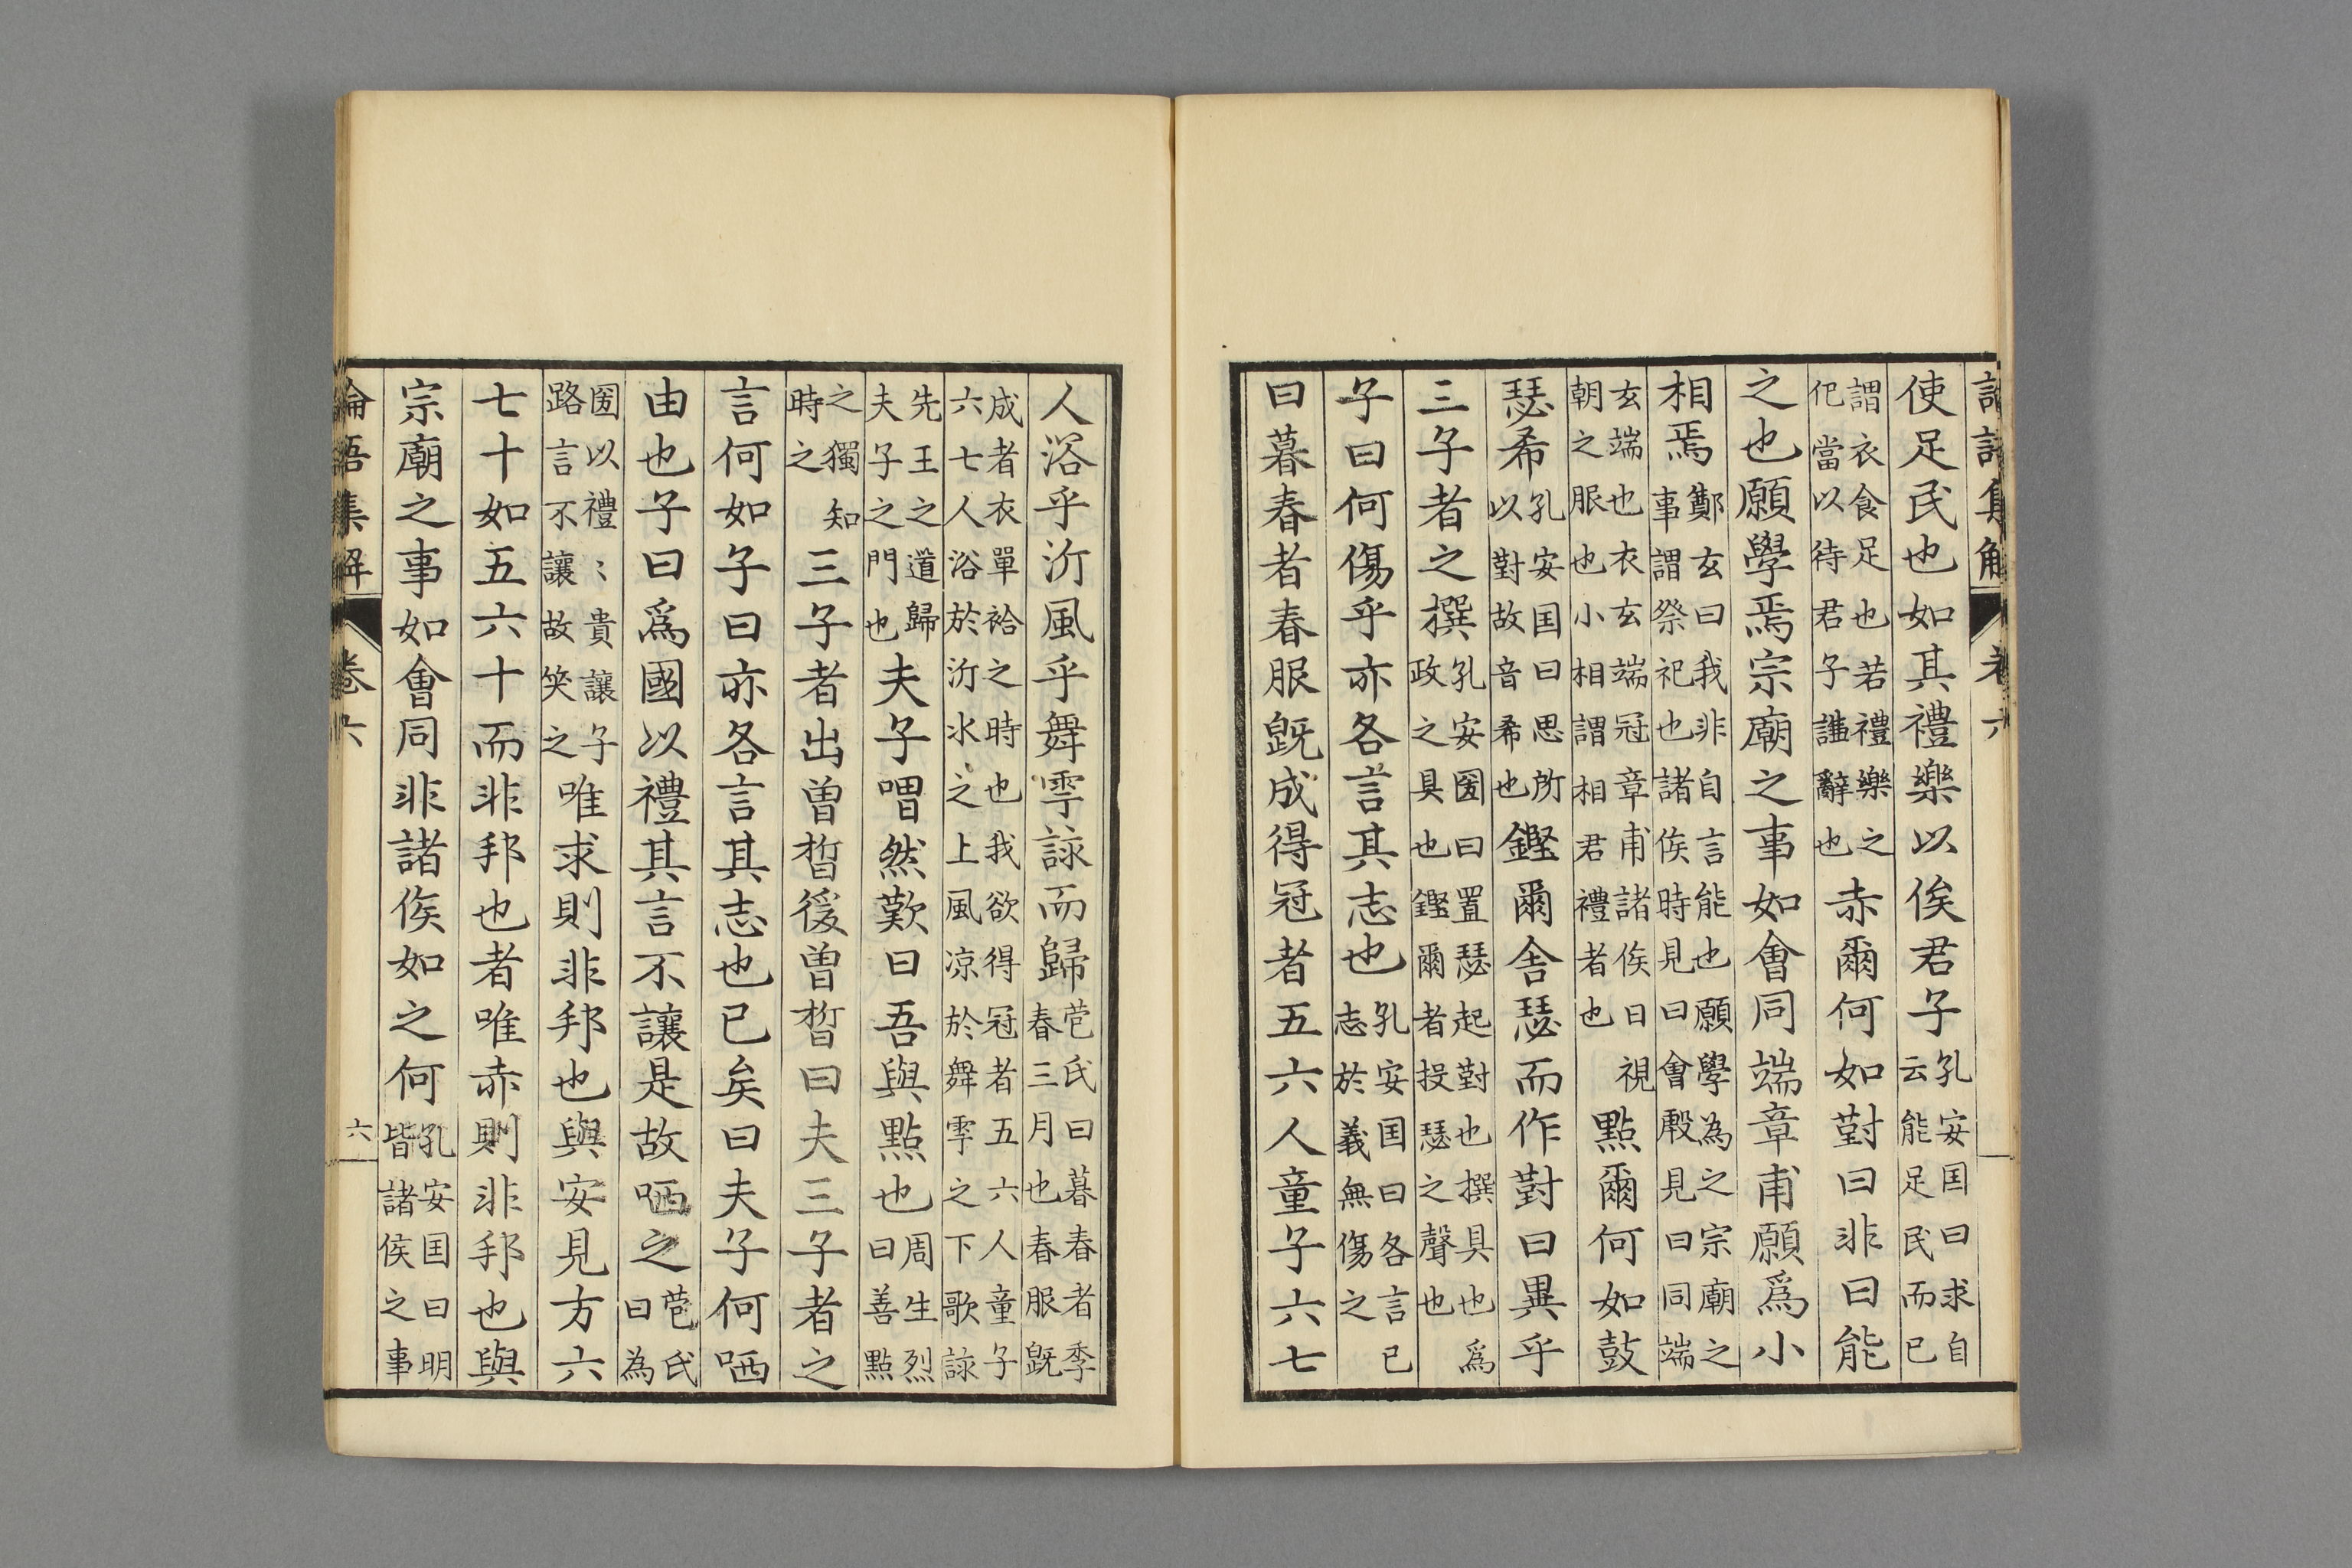 使足民也如其禮樂以俟君子孔安囯曰求自云能足民而已
謂衣食足也若禮樂之化當以待君子謙辭也赤爾何如對曰非曰能
之也願學焉宗廟之事如會同端章甫願爲小
相焉鄭玄曰我非自言能也願學為之宗廟之事謂祭祀也諸侯時見曰會殷見曰同端
玄端也衣玄端冠章甫諸侯日視朝之服也小相謂相君禮者也點爾何如鼓
瑟希孔安囯曰思所以對故音希也鏗爾舍瑟而作對曰異乎
三子者之撰孔安圀曰置瑟起對也撰具也爲政之具也鏗爾者投瑟之聲也
子曰何傷乎亦各言其志也孔安囯曰各言己志於義無傷之
曰暮春者春服既成得冠者五六人童子六七
人浴乎沂風乎舞雩詠而歸苞氏曰暮春者季春三月也春服既
成者衣單袷之時也我欲得冠者五六人童子六七人浴於沂水之上風凉於舞雩之下歌詠
先王之道歸夫子之門也夫子喟然歎曰吾與點也周生烈曰善點
之獨知時之三子者出曾晳後曾晳曰夫三子者之
言何如子曰亦各言其志也已矣曰夫子何哂
由也子曰爲國以禮其言不讓是故哂之苞氏曰為
圀以禮〻貴讓子路言不讓故笑之唯求則非邦也與安見方六
七十如五六十而非邦也者唯赤則非邦也與
宗廟之事如會同非諸侯如之何孔安囯曰明皆諸侯之事
論語集解 卷六 六